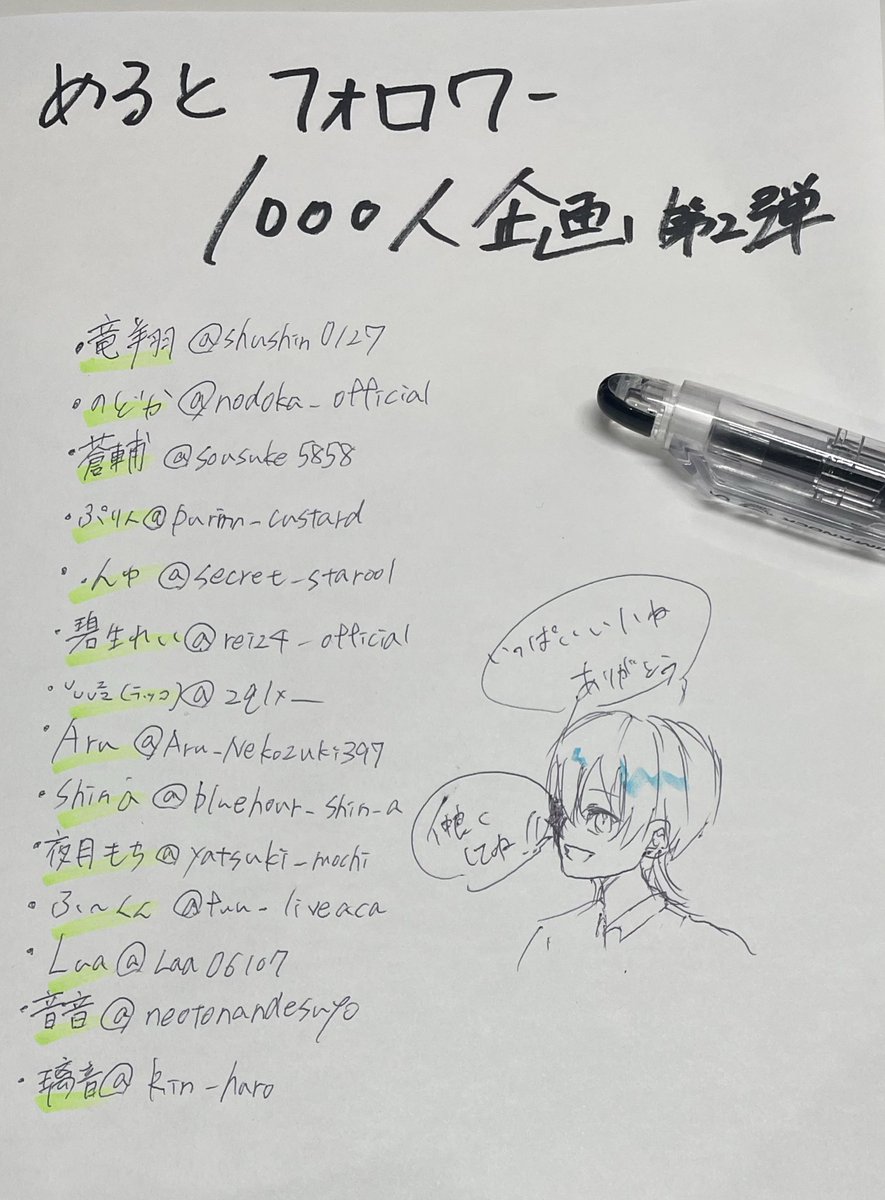 めると フォロワー
1000人企画 第2弾
・竜翔 @shushin0127
・のどか @nodoka_official
・蒼輔 @sousuke5858
・ぷりん@purinn_custard
・んゅ @secret_starool
・碧生れい@rei24_official
(ラッコ)@zqlx__
・Aru @Aru_Nekozuki397
・shin a @bluehour_shin_a
・夜月もち@yatsuki_mochi
・ふぅ〜くん @fuu_liveaca
・Laa@Laa06107
・音音@neotonandesuyo
・璃音@kin_haro
いっぱいいいね
ありがとう
仲良く
してね!!